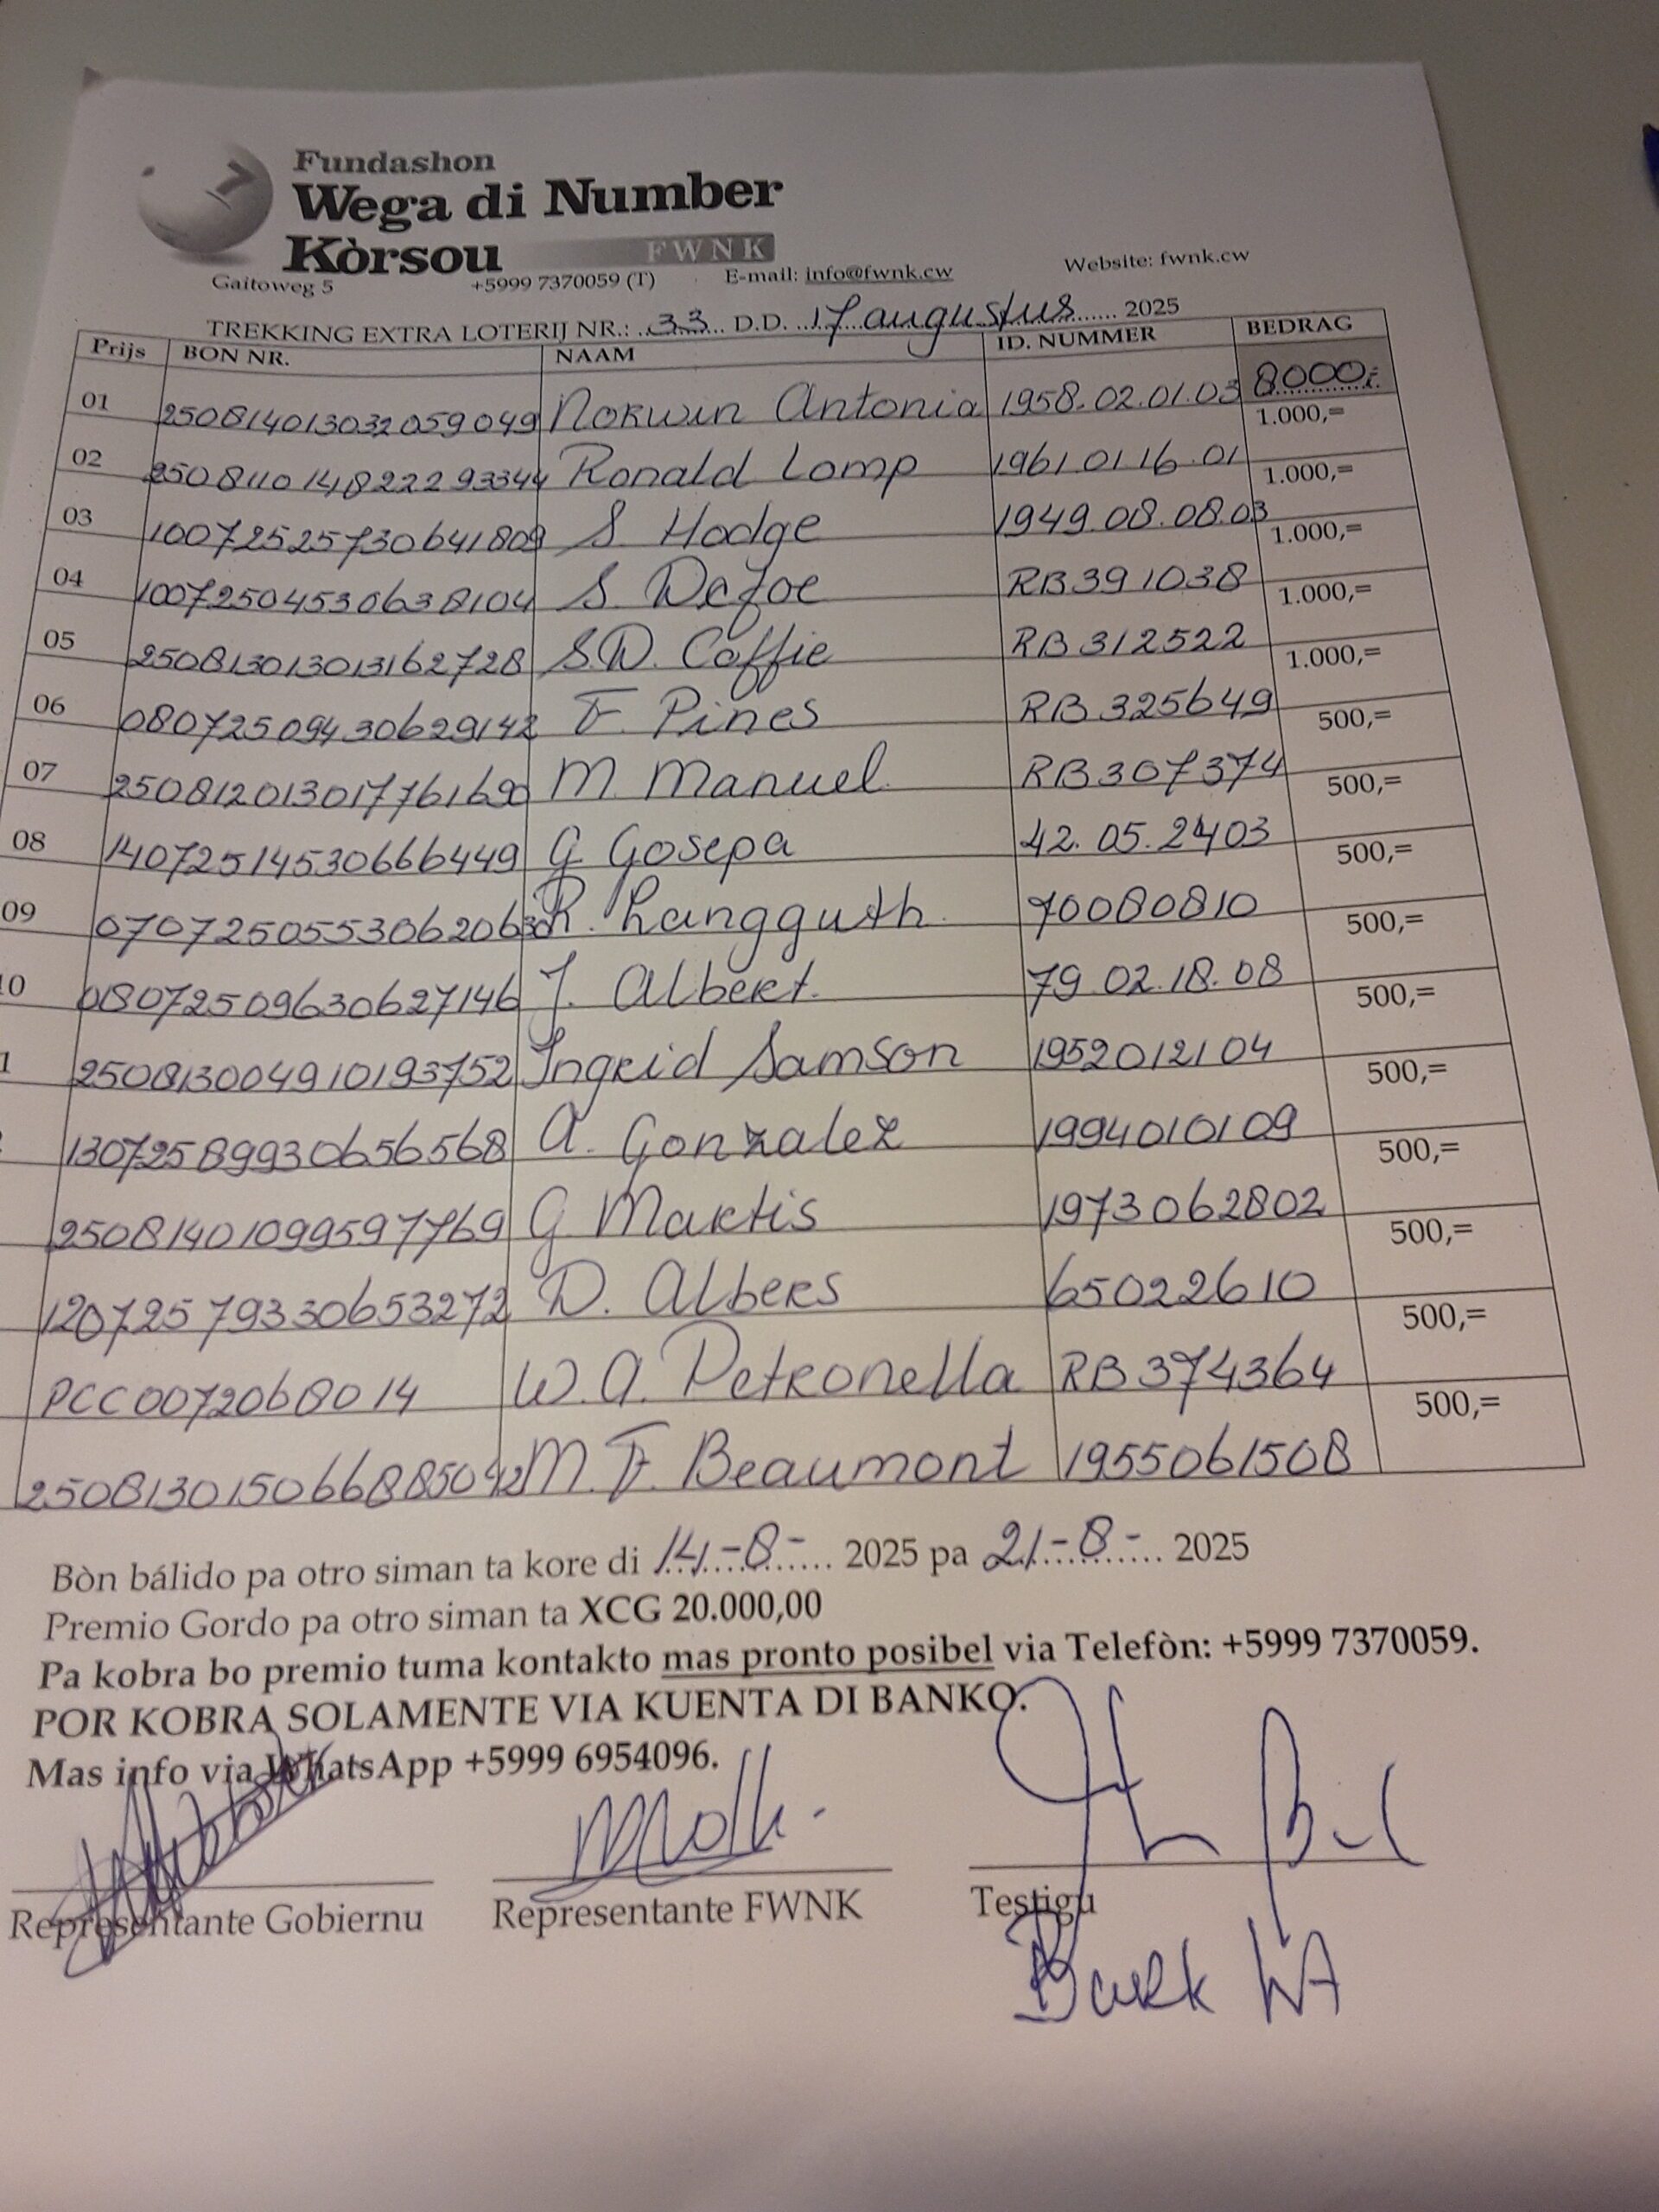 Fundashon
Wega di Number
Kòrsou FWNK
Gaitoweg 5 +5999 7370059 (T) E-mail: info@fwnk.cw Website: fwnk.cw
TREKKING EXTRA LOTERIJ NR.: 33 D.D. 17 augustus 2025
Prijs BON NR. NAAM ID. NUMMER BEDRAG
01 250814013032059049 Norwin Antonia 1958.02.01.03 8000,=
02 250811014822293344 Ronald Lomp 1961.01.16.01 1.000,=
03 10072525730641809 S. Hodge 1949.08.08.03 1.000,=
04 10072504530638104 S. Defoe RB391038 1.000,=
05 250813013013162728 S.D. Coffie RB312522 1.000,=
06 08072509430629142 F. Pines RB325649 1.000,=
07 250812013017761690 M. Manuel RB307374 500,=
08 14072514530666449 G. Gosepa 42.05.2403 500,=
09 070725055306206 R. Langguth 70080810 500,=
10 08072509630627146 J. Albert. 79.02.18.08 500,=
1 250813004910193752 Ingrid Samson 1952012104 500,=
13072589930656568 A. Gonzalez 1994010109 500,=
250814010999597769 G. Martis 1973062802 500,=
12072579330653272 D. Albers 65022610 500,=
PCC0072068014 W.A. Petronella RB374364 500,=
250813015066885042 M.F. Beaumont 1955061508 500,=
Bòn bálido pa otro siman ta kore di 14-8- 2025 pa 21-8- 2025
Premio Gordo pa otro siman ta XCG 20.000,00
Pa kobra bo premio tuma kontakto mas pronto posibel via Telefòn: +5999 7370059.
POR KOBRA SOLAMENTE VIA KUENTA DI BANKO.
Mas info via WhatsApp +5999 6954096.
Representante Gobiernu Representante FWNK Testigu